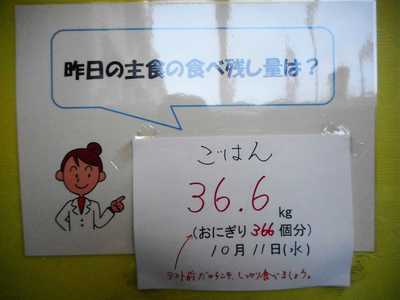 昨日の主食の食べ残し量は？
ごはん
36.6 kg
(おにぎり 366 個分)
10月11日(水)
テスト前だからこそ、しっかり食べましょう。